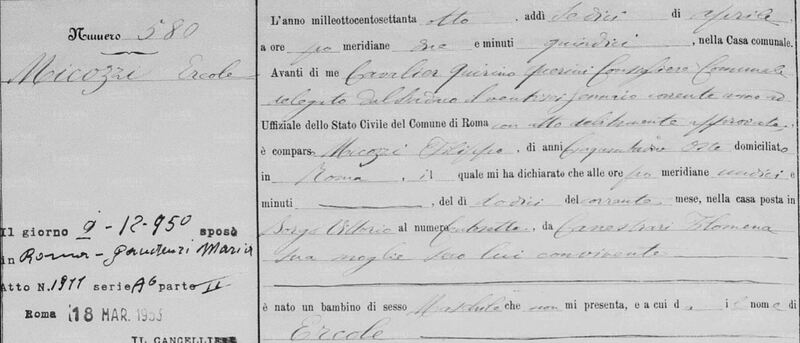 Numero 580
Micozzi Ercole
Il giorno 9-12-950 sposò
in Roma - Gaudenzi Maria
Atto N. 1911 serie A6 parte II
Roma 18 MAR. 1953
IL CANCELLIE
L'anno milleottocentosettanta otto, addì sedici di aprile
a ore po meridiane due e minuti quindici, nella Casa comunale.
Avanti di me Cavalier Quirino Querini Consigliere Comunale
delegato dal Sindaco il ventisei gennaio corrente anno ad
Uffiziale dello Stato Civile del Comune di Roma con atto debitamente approvato,
è compars Micozzi Filippo, di anni Oste domiciliato
in Roma, il quale mi ha dichiarato che alle ore meridiane undici e
minuti del dì dodici del corrente mese, nella casa posta in
Borgo Vittorio al numero da Canestrari Filomena
sua moglie seco lui convivente
è nato un bambino di sesso Maschile che non mi presenta, e a cui d a il nome di
Ercole